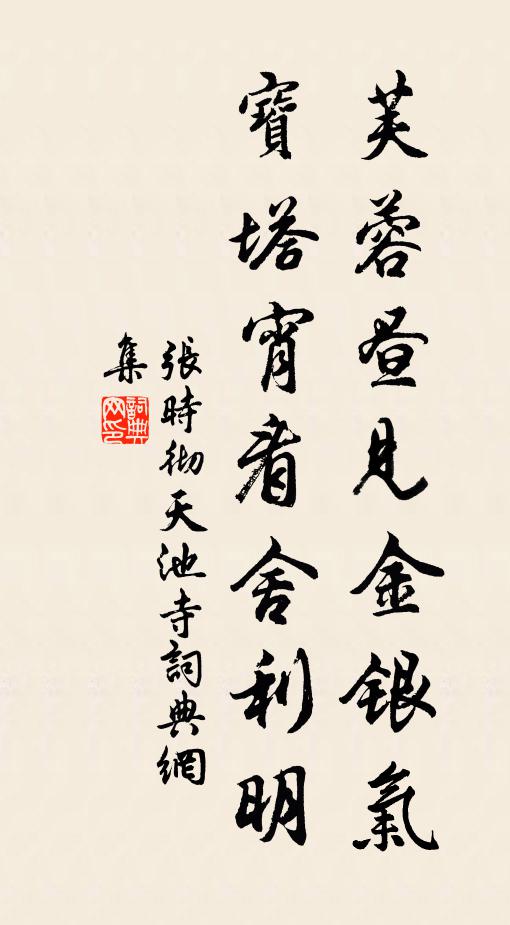 芙蓉昼見金銀氣
寶塔宵看舍利明
張時彻天池寺詞典網
集
詞典
网印